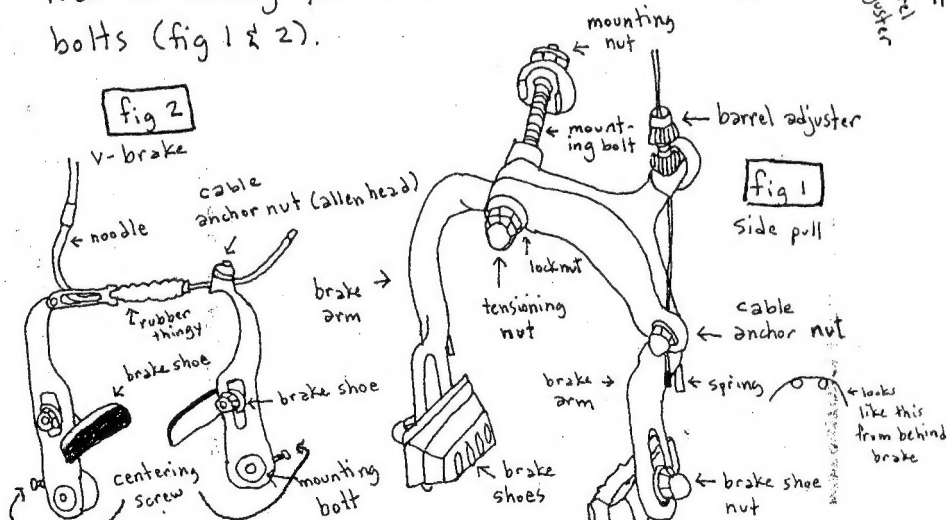 bolts (fig 1 & 2).
fig 2
v-brake
noodle
cable
anchor nut (allen head)
rubber
thingy
brake shoe
brake shoe
centering
screw
mounting
bolt
mounting
nut
mount-
ing bolt
barrel adjuster
fig 1
side pull
locknut
tensioning
nut
brake
arm
cable
anchor nut
brake
arm
spring
looks
like this
from behind
brake
brake
shoes
brake shoe
nut